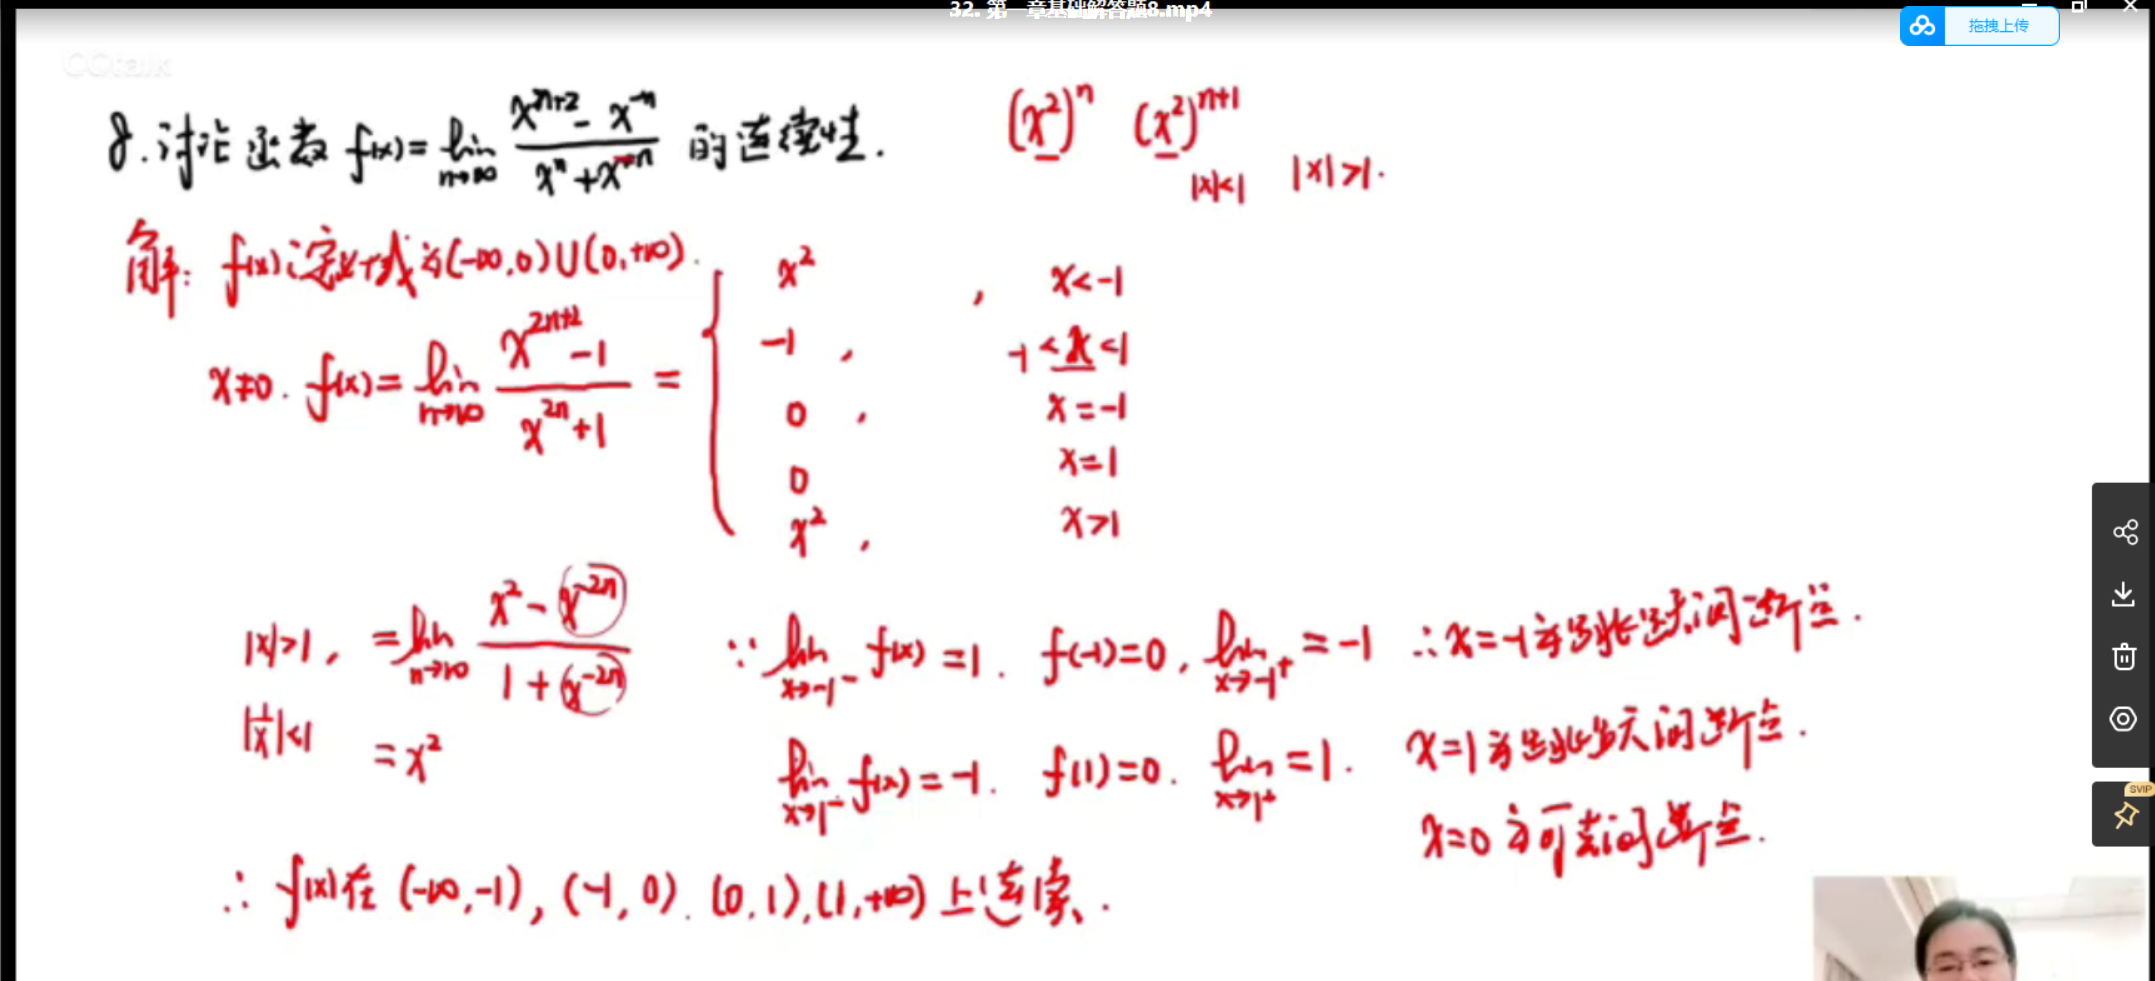 32. 第一章基础解答题8.mp4
拖拽上传
CCtalk
8.讨论函数 f(x)=lim_{n→∞} (x^{n+2} - x^{-n})/(x^n + x^{-n}) 的连续性.
(x²)^n (x²)^{n+1}
|x|<1 |x|>1.
解: f(x)定义域为(-∞,0)∪(0,+∞).
x≠0. f(x)=lim_{n→∞} (x^{2n+2} - 1)/(x^{2n} + 1) = {
x² , x<-1
-1 , -1<x<1
0 , x=-1
0 x=1
x² , x>1
|x|>1, =lim_{n→∞} (x² - x^{-2n})/(1 + x^{-2n})
|1/x|<1 = x²
∵ lim_{x→-1⁻} f(x)=1. f(-1)=0, lim_{x→-1⁺} =-1 ∴x=-1为跳跃间断点.
lim_{x→1⁻} f(x)=-1. f(1)=0. lim_{x→1⁺} =1. x=1为跳跃间断点.
x=0为可去间断点.
∴ f(x)在(-∞,-1),(-1,0).(0,1).(1,+∞)上连续.
SVIP